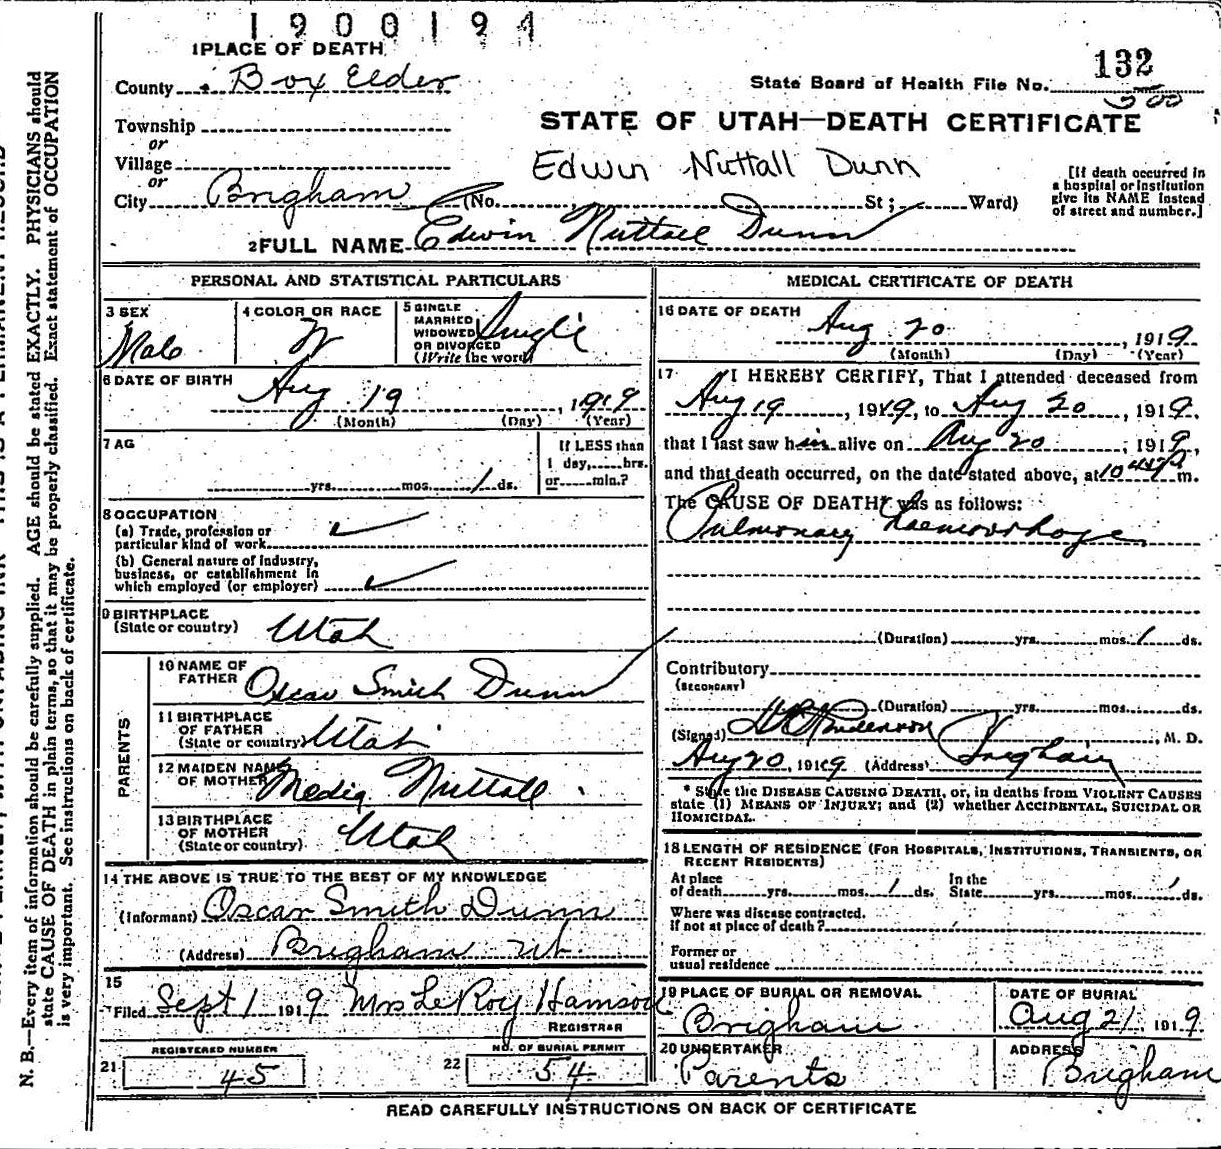 1900194
1 PLACE OF DEATH
County Box Elder
State Board of Health File No. 132
500
Township
STATE OF UTAH—DEATH CERTIFICATE
or
Village
Edwin Nuttall Dunn
or
City Brigham (No. St; Ward)
[If death occurred in
a hospital or institution
give its NAME instead
of street and number.]
2 FULL NAME Edwin Nuttall Dunn
PERSONAL AND STATISTICAL PARTICULARS
3 SEX
Male
4 COLOR OR RACE
W
5 SINGLE
MARRIED
WIDOWED
OR DIVORCED
(Write the word)
Single
6 DATE OF BIRTH
Aug 19, 1919
(Month) (Day) (Year)
7 AG
yrs. mos. 1 ds.
If LESS than
1 day, hrs.
or min.?
8 OCCUPATION
(a) Trade, profession or
particular kind of work
(b) General nature of industry,
business, or establishment in
which employed (or employer)
9 BIRTHPLACE
(State or country) Utah
PARENTS
10 NAME OF
FATHER Oscar Smith Dunn
11 BIRTHPLACE
OF FATHER
(State or country) Utah
12 MAIDEN NAME
OF MOTHER Nuttall
13 BIRTHPLACE
OF MOTHER
(State or country) Utah
14 THE ABOVE IS TRUE TO THE BEST OF MY KNOWLEDGE
(Informant) Oscar Smith Dunn
(Address) Brigham Ut.
15
Filed Sept 1 1919 Mrs LeRoy Hamson
REGISTRAR
REGISTERED NUMBER
21 45
NO. OF BURIAL PERMIT
22 54
MEDICAL CERTIFICATE OF DEATH
16 DATE OF DEATH
Aug 20, 1919
(Month) (Day) (Year)
17 I HEREBY CERTIFY, That I attended deceased from
Aug 19, 1919, to Aug 20, 1919,
that I last saw him alive on Aug 20, 1919,
and that death occurred, on the date stated above, at 10 m.
The CAUSE OF DEATH* was as follows:
Pulmonary Haemorrhage
(Duration) yrs. mos. 1 ds.
Contributory
(SECONDARY)
(Duration) yrs. mos. ds.
(Signed) Anderson, M. D.
Aug 20, 1919 (Address) Brigham
* State the DISEASE CAUSING DEATH, or, in deaths from VIOLENT CAUSES
state (1) MEANS OF INJURY; and (2) whether ACCIDENTAL, SUICIDAL OR
HOMICIDAL.
18 LENGTH OF RESIDENCE (FOR HOSPITALS, INSTITUTIONS, TRANSIENTS, OR
RECENT RESIDENTS)
At place
of death yrs. mos. 1 ds.
In the
State yrs. mos. 1 ds.
Where was disease contracted.
If not at place of death?
Former or
usual residence
19 PLACE OF BURIAL OR REMOVAL
Brigham
DATE OF BURIAL
Aug 21 1919
20 UNDERTAKER
Parents
ADDRESS
Brigham
READ CAREFULLY INSTRUCTIONS ON BACK OF CERTIFICATE
N. B.—Every item of information should be carefully supplied. AGE should be stated EXACTLY. PHYSICIANS should
state CAUSE OF DEATH in plain terms, so that it may be properly classified. Exact statement of OCCUPATION
is very important. See instructions on back of certificate.